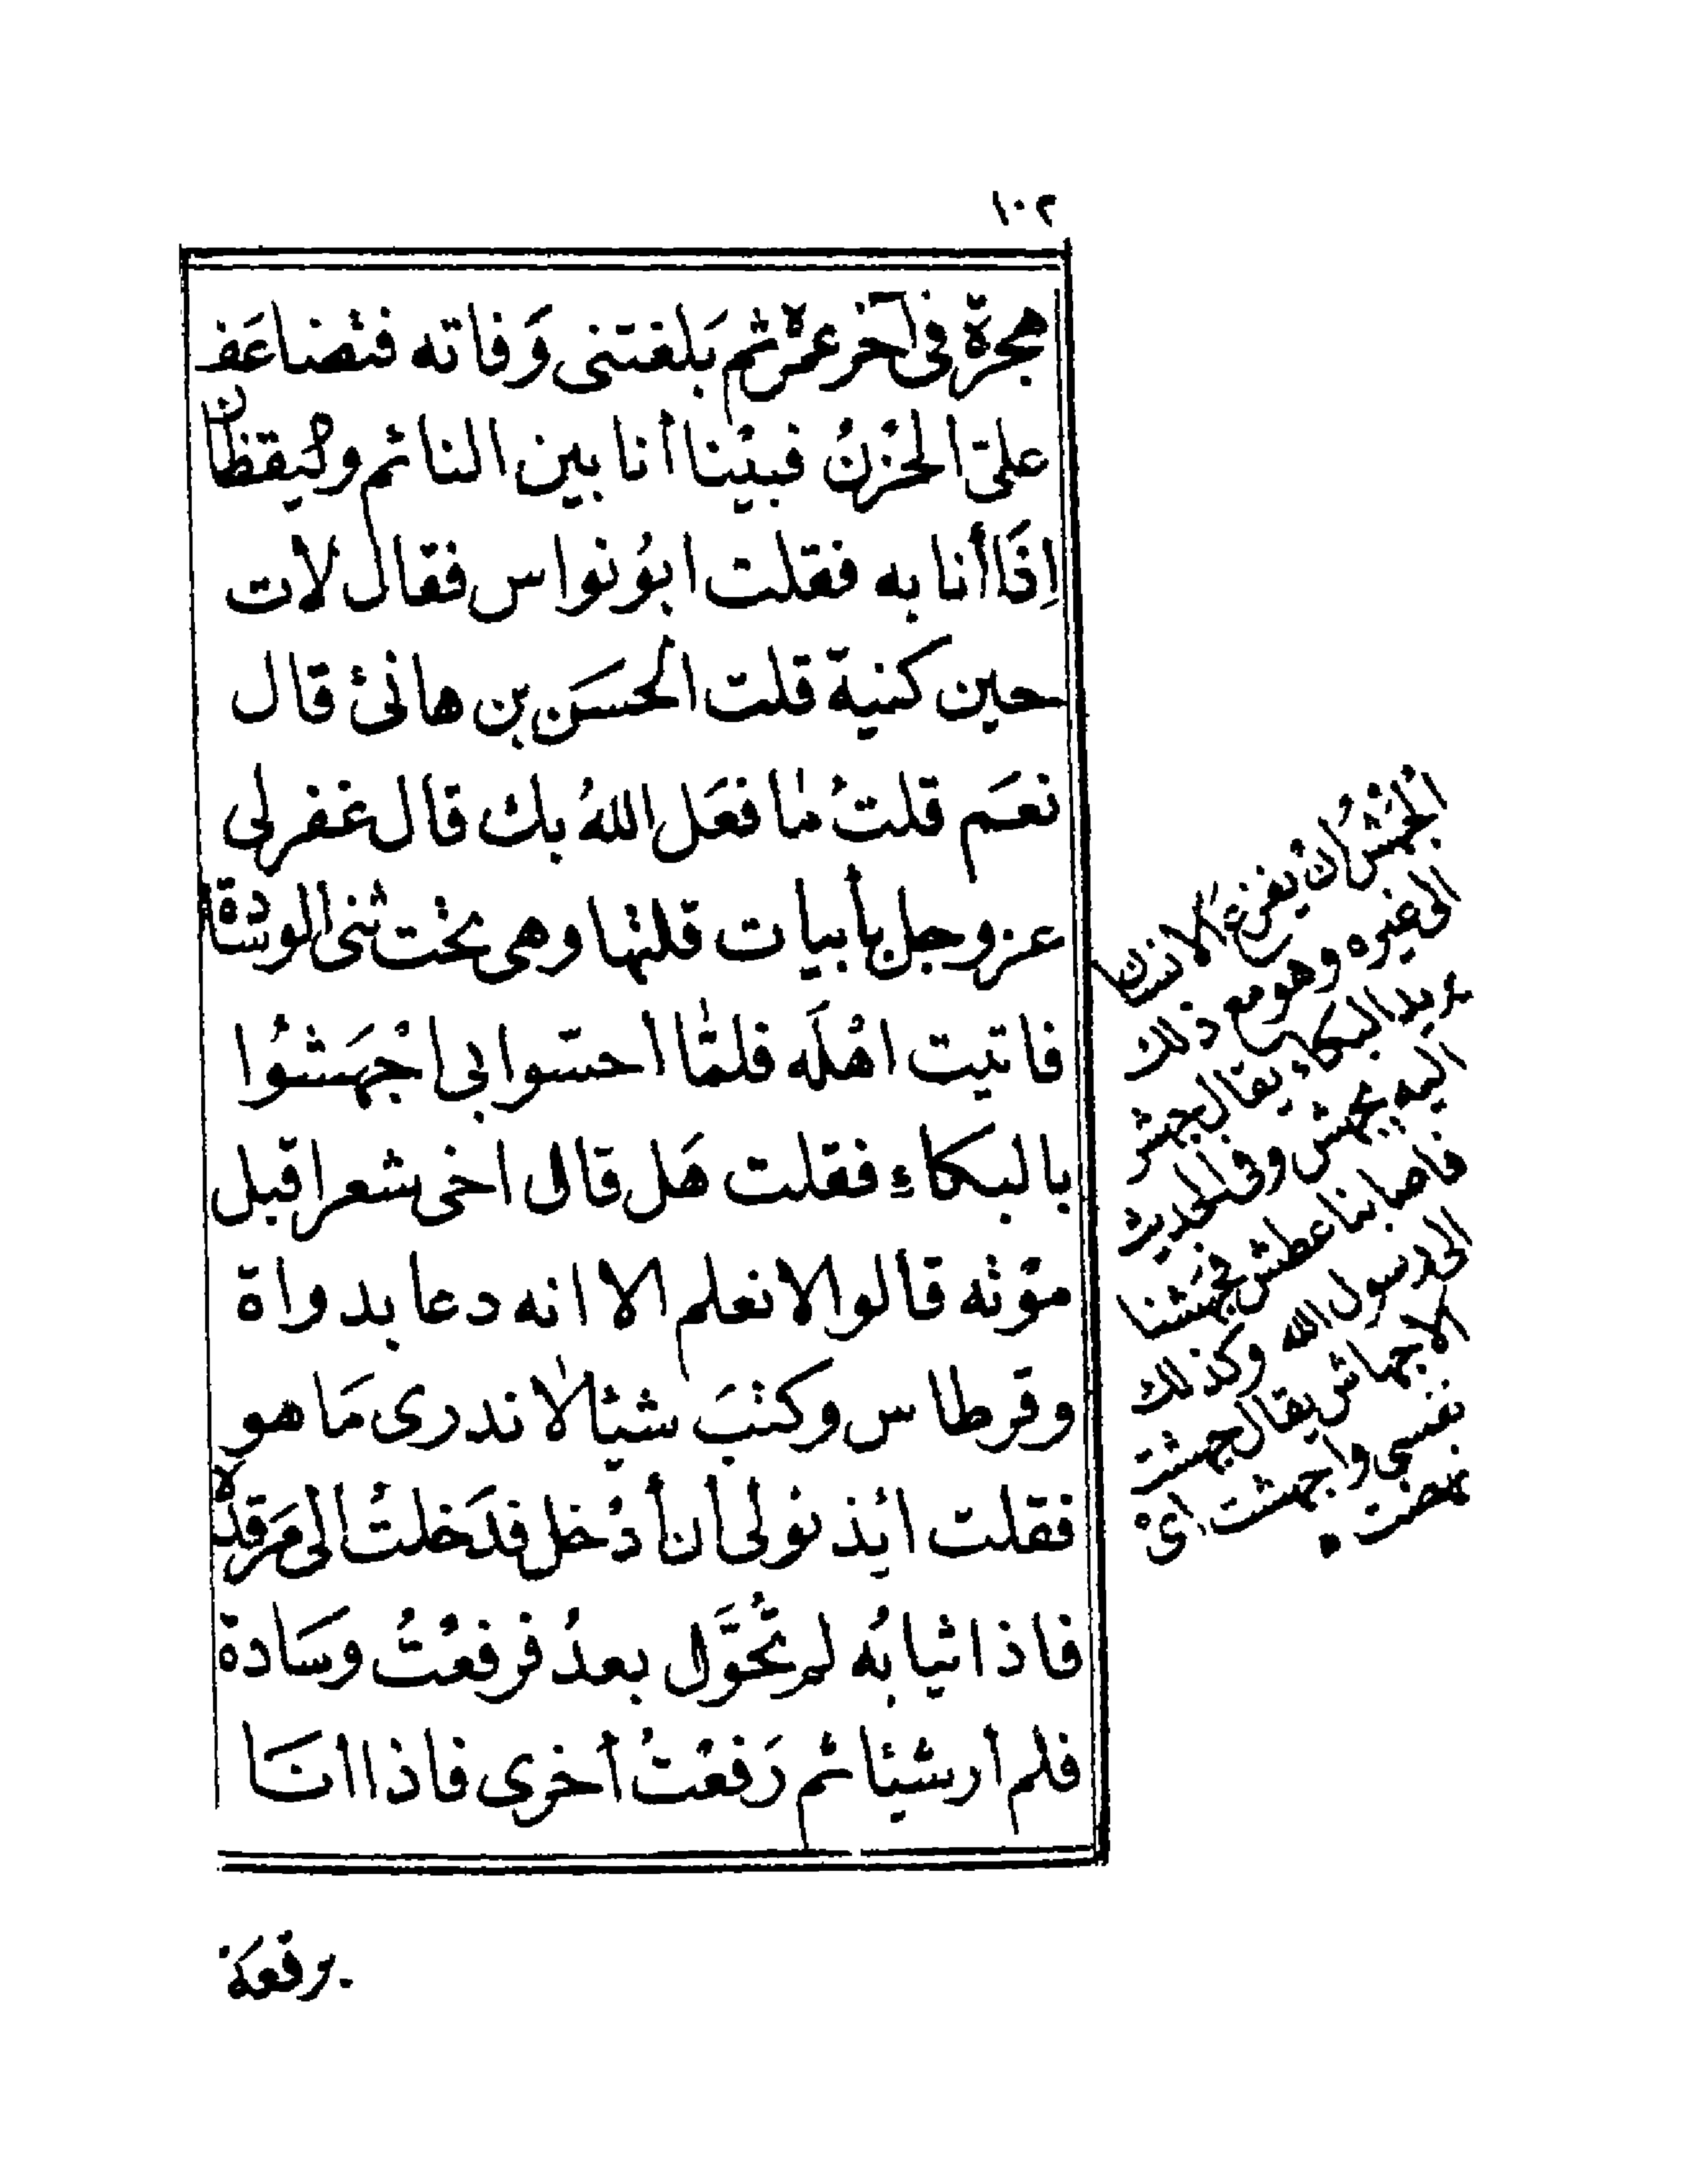 ١٠٢
هجرة في آخر عمره ثم بَلغتنى وَفاته فتضاعَف
علىّ الحُزْنُ فبيْنا أنا بين النائم واليَقظان
اِذَا أنا به فقلت ابوُ نواس فقال لات
حين كنية قلت الحسَن بن هانئ قال
نعَم قلتُ مٰا فعَل اللهُ بك قال غفر لى
عز وجل بأبيات قلتها وهى تحت ثنى الوسادة
فاتيت اهْلَه فلمّٰا احسّوا بى اجْهَشُوا
بالبكاءِ فقلت هَل قال اخى شعرا قبل
موْته قالوا لا نعلم الا انه دعا بدواة
وقرطاس وكتبَ شيئا لا ندرى مَا هو
فقلت ائذنوُ لى أن أدْخل فدَخلتُ الى مَرقده
فاذا ثيابُه لم تُحَوَّل بعدُ فرفعْتُ وسَادة
فلم أر شيئا ثم رَفعْتُ أخرى فاذا انَا
برقعَة
الجُهْشُ ان يفزعَ الانسان
الى غيره وهو مع ذلك
يريد البكاء يقال جهش
اليه يجهش وفى الحديث
فاصابنا عطش فجهَشنا
الى رسول الله وكذلك
الاجهاش يقال جهشت
نفسى واجهشت اى
نهضت